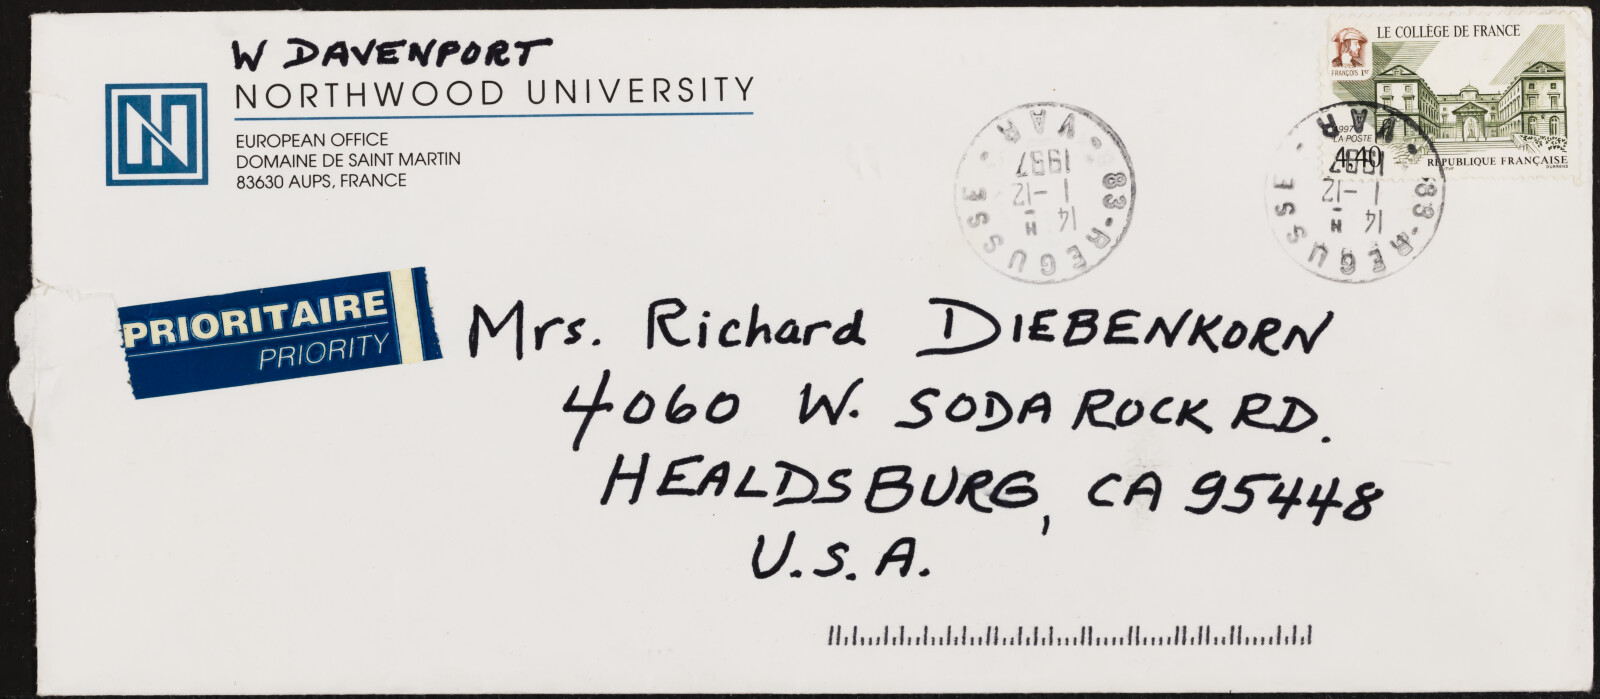 W DAVENPORT
NORTHWOOD UNIVERSITY
EUROPEAN OFFICE
DOMAINE DE SAINT MARTIN
83630 AUPS, FRANCE
LE COLLÈGE DE FRANCE
FRANÇOIS 1er
1997
LA POSTE
4,40
RÉPUBLIQUE FRANÇAISE
83-REGUSSE
VAR
14 H
1-12
1997
83-REGUSSE
VAR
14 H
1-12
1997
PRIORITAIRE
PRIORITY
Mrs. Richard DIEBENKORN
4060 W. SODA ROCK RD.
HEALDSBURG, CA 95448
U.S.A.